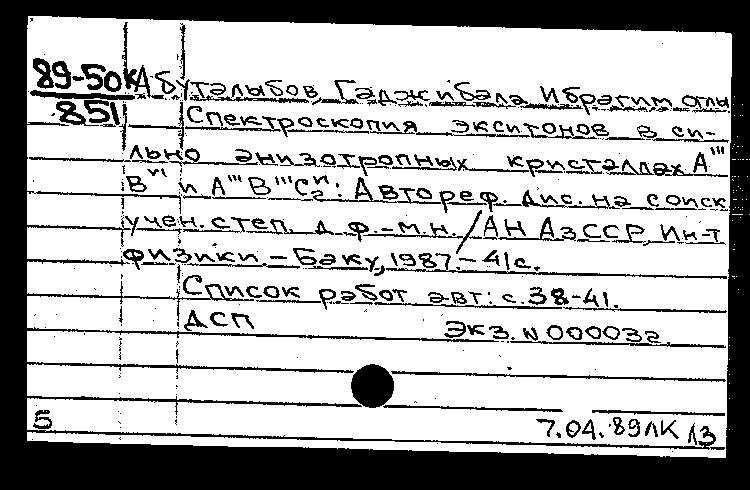 89-50к Абуталыбов, Гаджибала Ибрагим оглы
851 Спектроскопия экситонов в си-
льно анизотропных кристаллах A'''
B^VI и A'''B'''C₂^VI: Автореф. дис. на соиск
учен. степ. д. ф.-м.н. / АН АзССР, Ин-т
физики. – Баку, 1987. – 41с.
Список работ авт: с.38-41.
ДСП Экз. N 000032
5 7.04.89ЛК